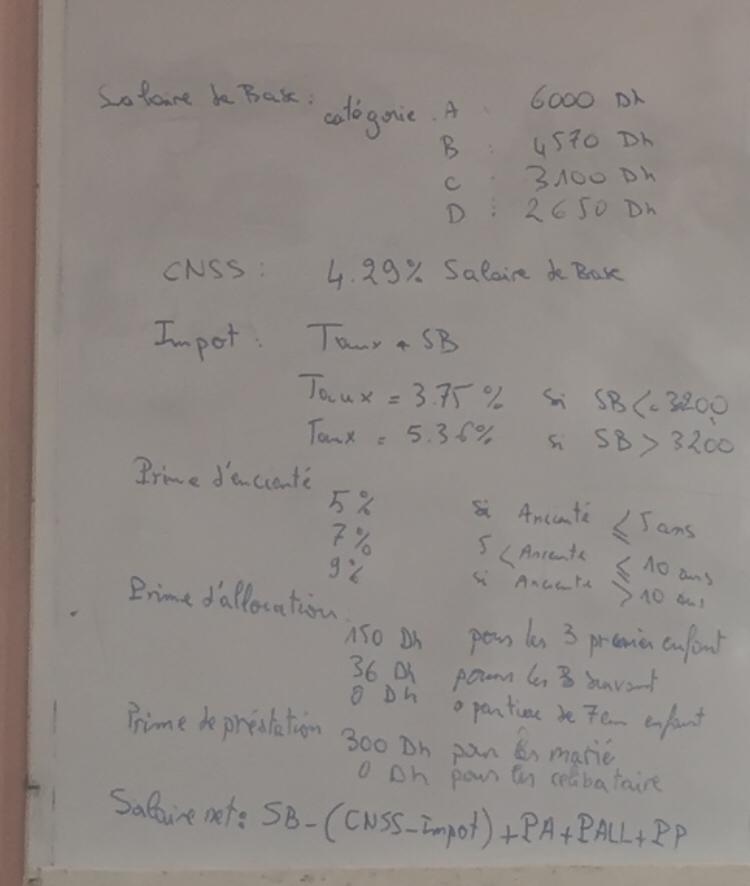 Salaire de Base : catégorie . A : 6000 Dh
B : 4570 Dh
C : 3100 Dh
D : 2650 Dh
CNSS : 4.29% Salaire de Base
Impot : Taux * SB
Taux = 3.75 % si SB <= 3200
Taux = 5.36% si SB > 3200
Prime d'encienté
5% si Ancienté ≤ 5 ans
7% 5 < Ancienté ≤ 10 ans
9% si Ancienté > 10 ans
Prime d'allocation
150 Dh pour les 3 premier enfant
36 Dh pour les 3 suivant
0 Dh a partire de 7em enfant
Prime de préstation
300 Dh pour les marié
0 Dh pour les celibataire
Salaire net : SB - (CNSS - Impot) + PA + PALL + PP